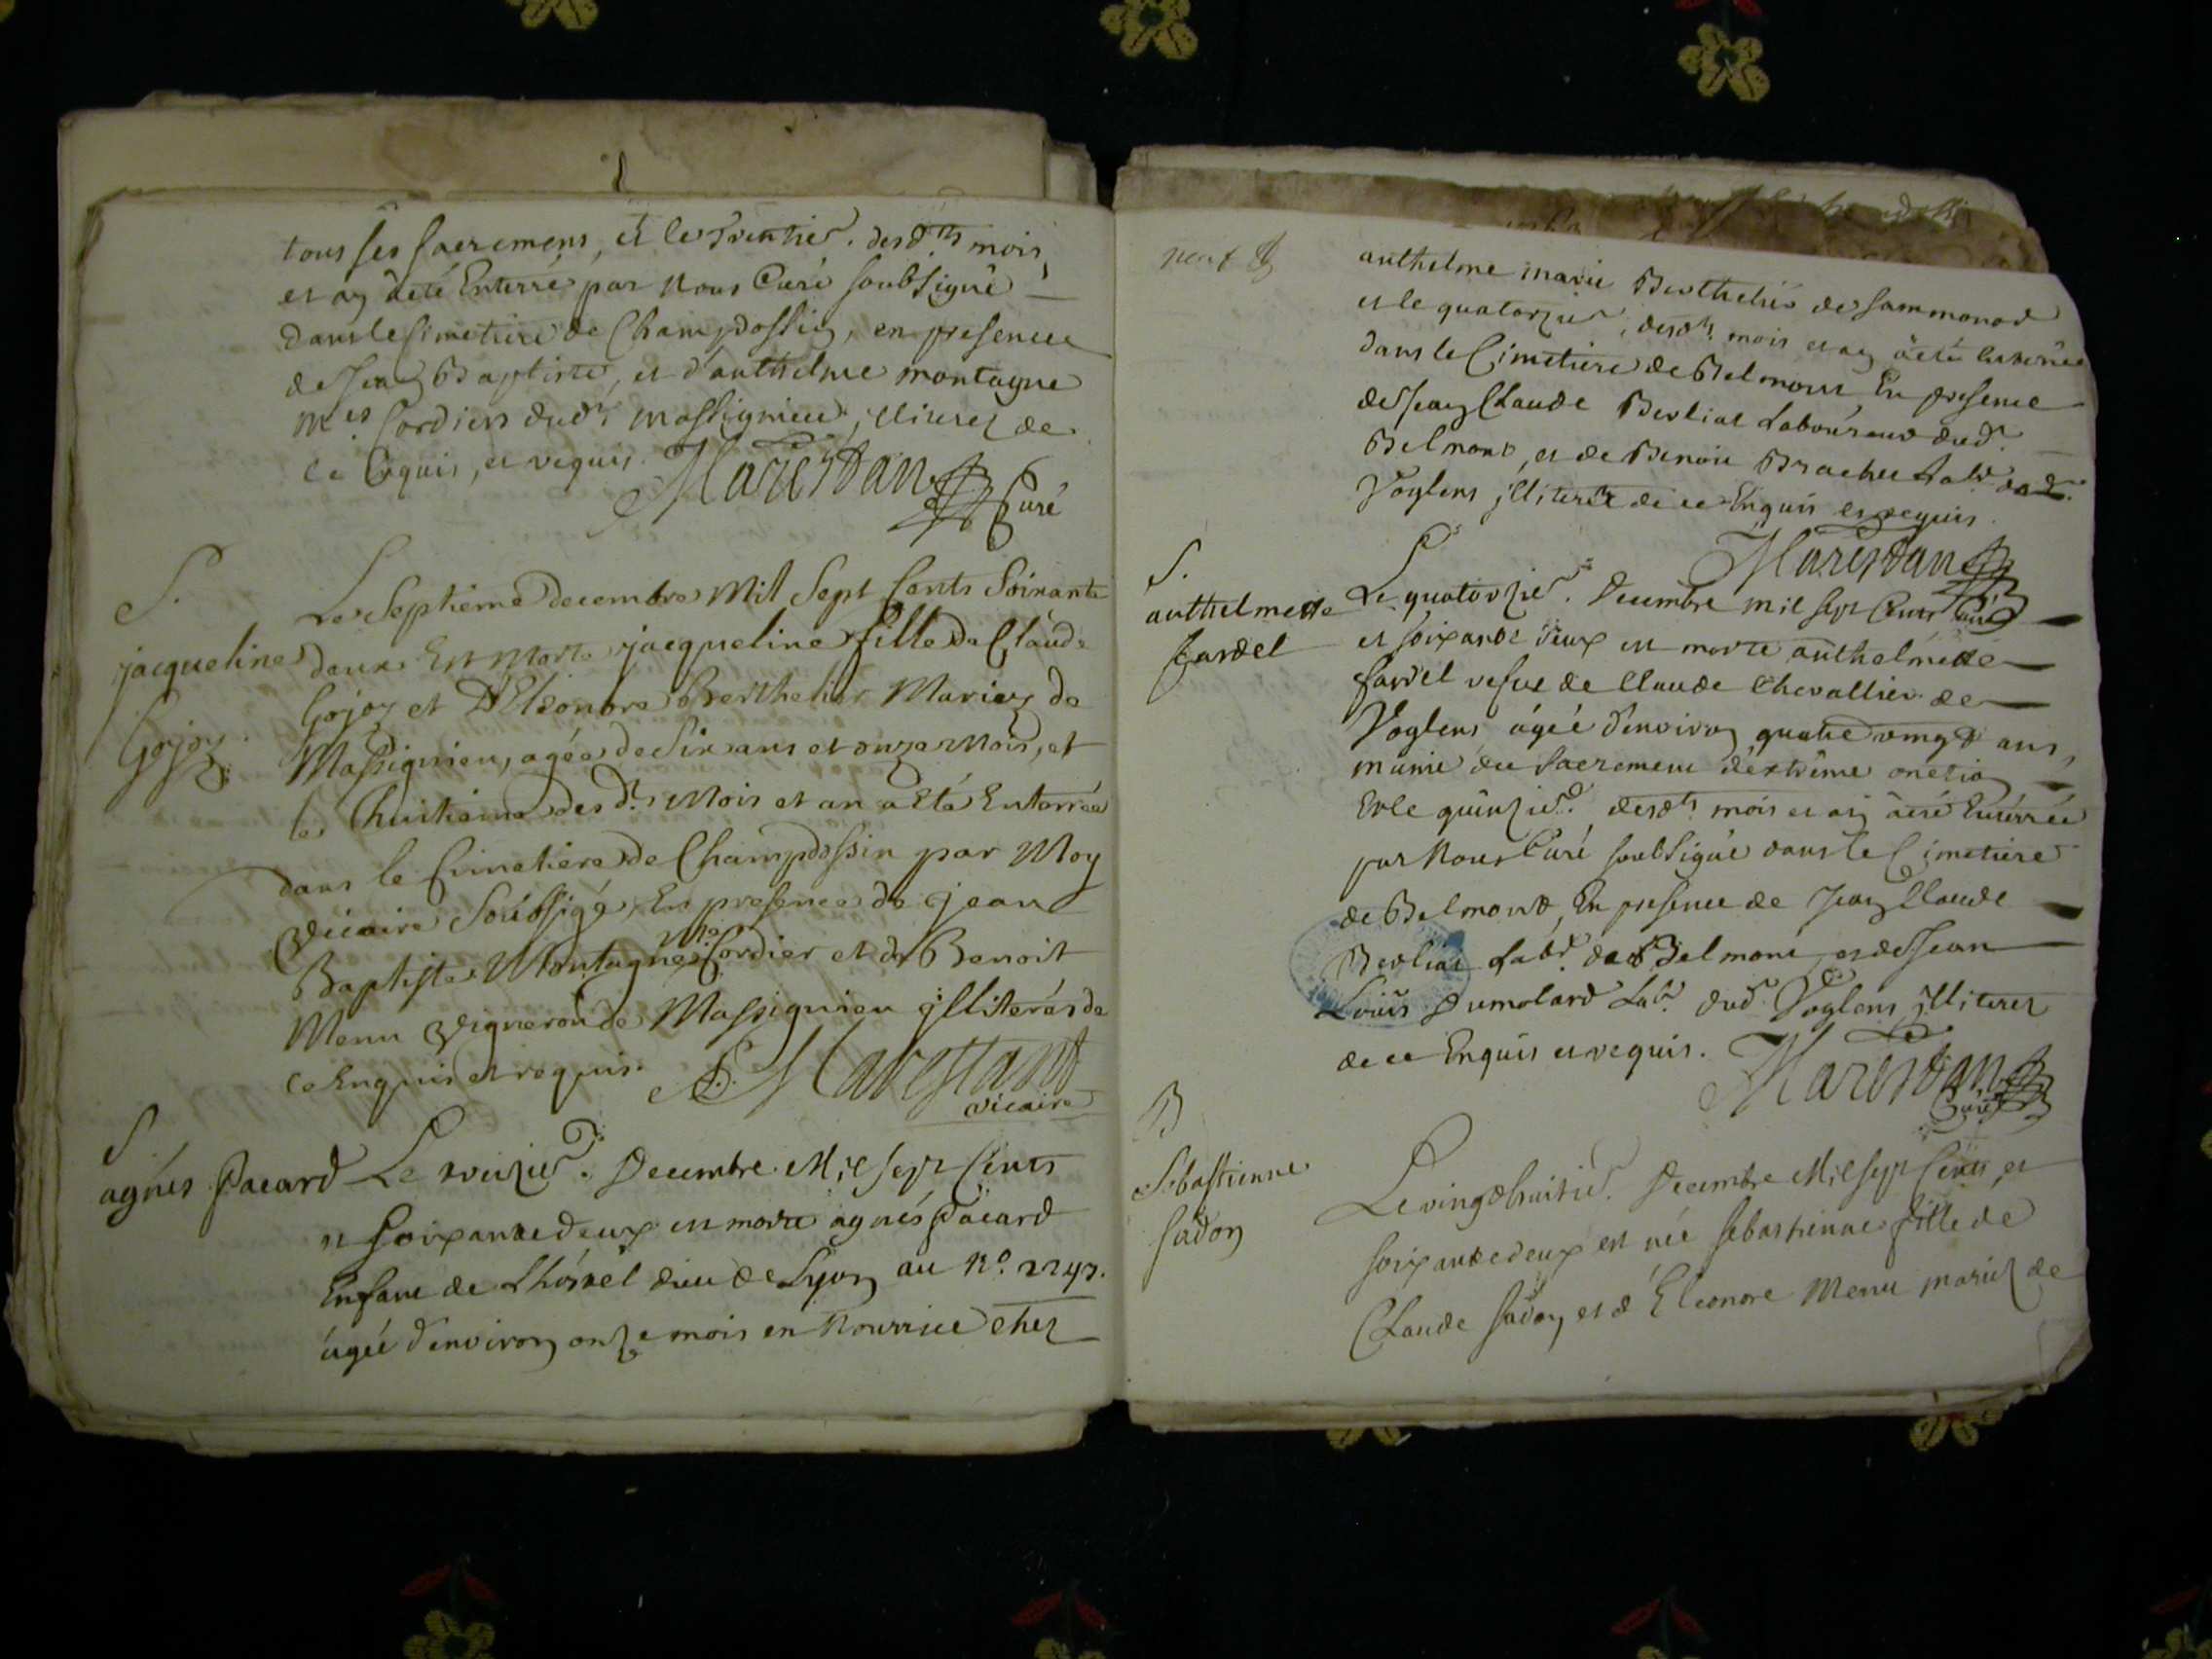 tous ses sacremens, et le trentie. desdts mois
et an a été Enterré par Nous Curé soubsigné
dans le Cimetiere de Champdossin, en presence
de Jean Baptiste, et d'anthelme montagne
mes Cordiers dudt massignieu, illiterez de
ce Enquis, et requis. Marestan Curé
S.
jacqueline
Gojoz
Le Septieme decembre Mil Sept Cents Soixante
deux Est Morte jacqueline fille de Claude
Gojoz et D'Eleonore Berthelier Mariez de
Massignieu, agée de Six ans et onze Mois, et
le huitieme desdts Mois et an a Eté Enterrée
dans le Cimetiere de Champdossin par Moy
Vicaire Soubsigné, En presence de jean
Baptiste Montagne Me Cordier et de Benoit
Menu Vigneron de Massignieu illiterés de
ce Enquis et requis. Marestant
vicaire
S
agnés Pacard
Le treizie. Decembre Mil sept Cents
et soixante deux est morte agnés Pacard
Enfant de L'hôtel dieu de Lyon au No. 2247.
agée d'environ onze mois en Nourrice chez
neuf
anthelme marie Berthelier de sammonod
et le quatorzie. desdts mois et an a été Enterrée
dans le Cimetiere de Belmont En presence
de Jean Claude Berliat Laboureur dudt
Belmont, et de Benoit Brachet Labr dudt
Voglens illiterez de ce Enquis et requis.
Marestan
Curé
S.
anthelmette
fardel
Le quatorzie. Decembre mil sept Cents
et soixante deux est morte anthelmette
fardel vefve de Claude Chevallier de
Voglens agée d'environ quatre vingt ans,
munie du sacrement d'extrême onction
Et le quinzie. desdts mois et an a été Enterrée
par Nous Curé soubsigné dans le Cimetiere
de Belmont, En presence de Jean Claude
Berliat Labr. de Belmont, et de Jean
Louis Dumolard Labr dudt Voglens illiterez
de ce Enquis et requis. Marestan
Curé
B
Sébastienne
sadon
Le vingt huitie. Decembre Mil sept Cents, et
soixante deux est née sebastienne fille de
Claude sadon, et d'Eleonore Menu mariez de